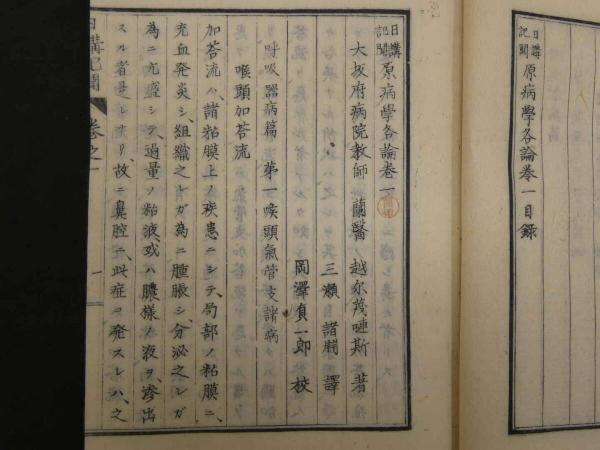 日講記聞 原病學各論卷一目録
日講記聞 原病學各論卷一
大坂府病院教師 蘭醫 越尓蔑嗹斯 著
三瀬諸淵 譯
岡澤貞一郎 校
呼吸器病篇 第一喉頭氣管支諸病
喉頭加荅流
加荅流ハ、諸粘膜上ノ疾患ニシテ、局部ノ粘膜ニ、
充血発炎シ、組織之レガ為ニ腫脹シ、分泌之レガ
為ニ亢盛シテ、過量ノ粘液、或ハ膿様ノ液ヲ滲出
スル者是レナリ、故ニ鼻腔ニ、此症ヲ発スレハ、之
日講記聞 卷之一 一